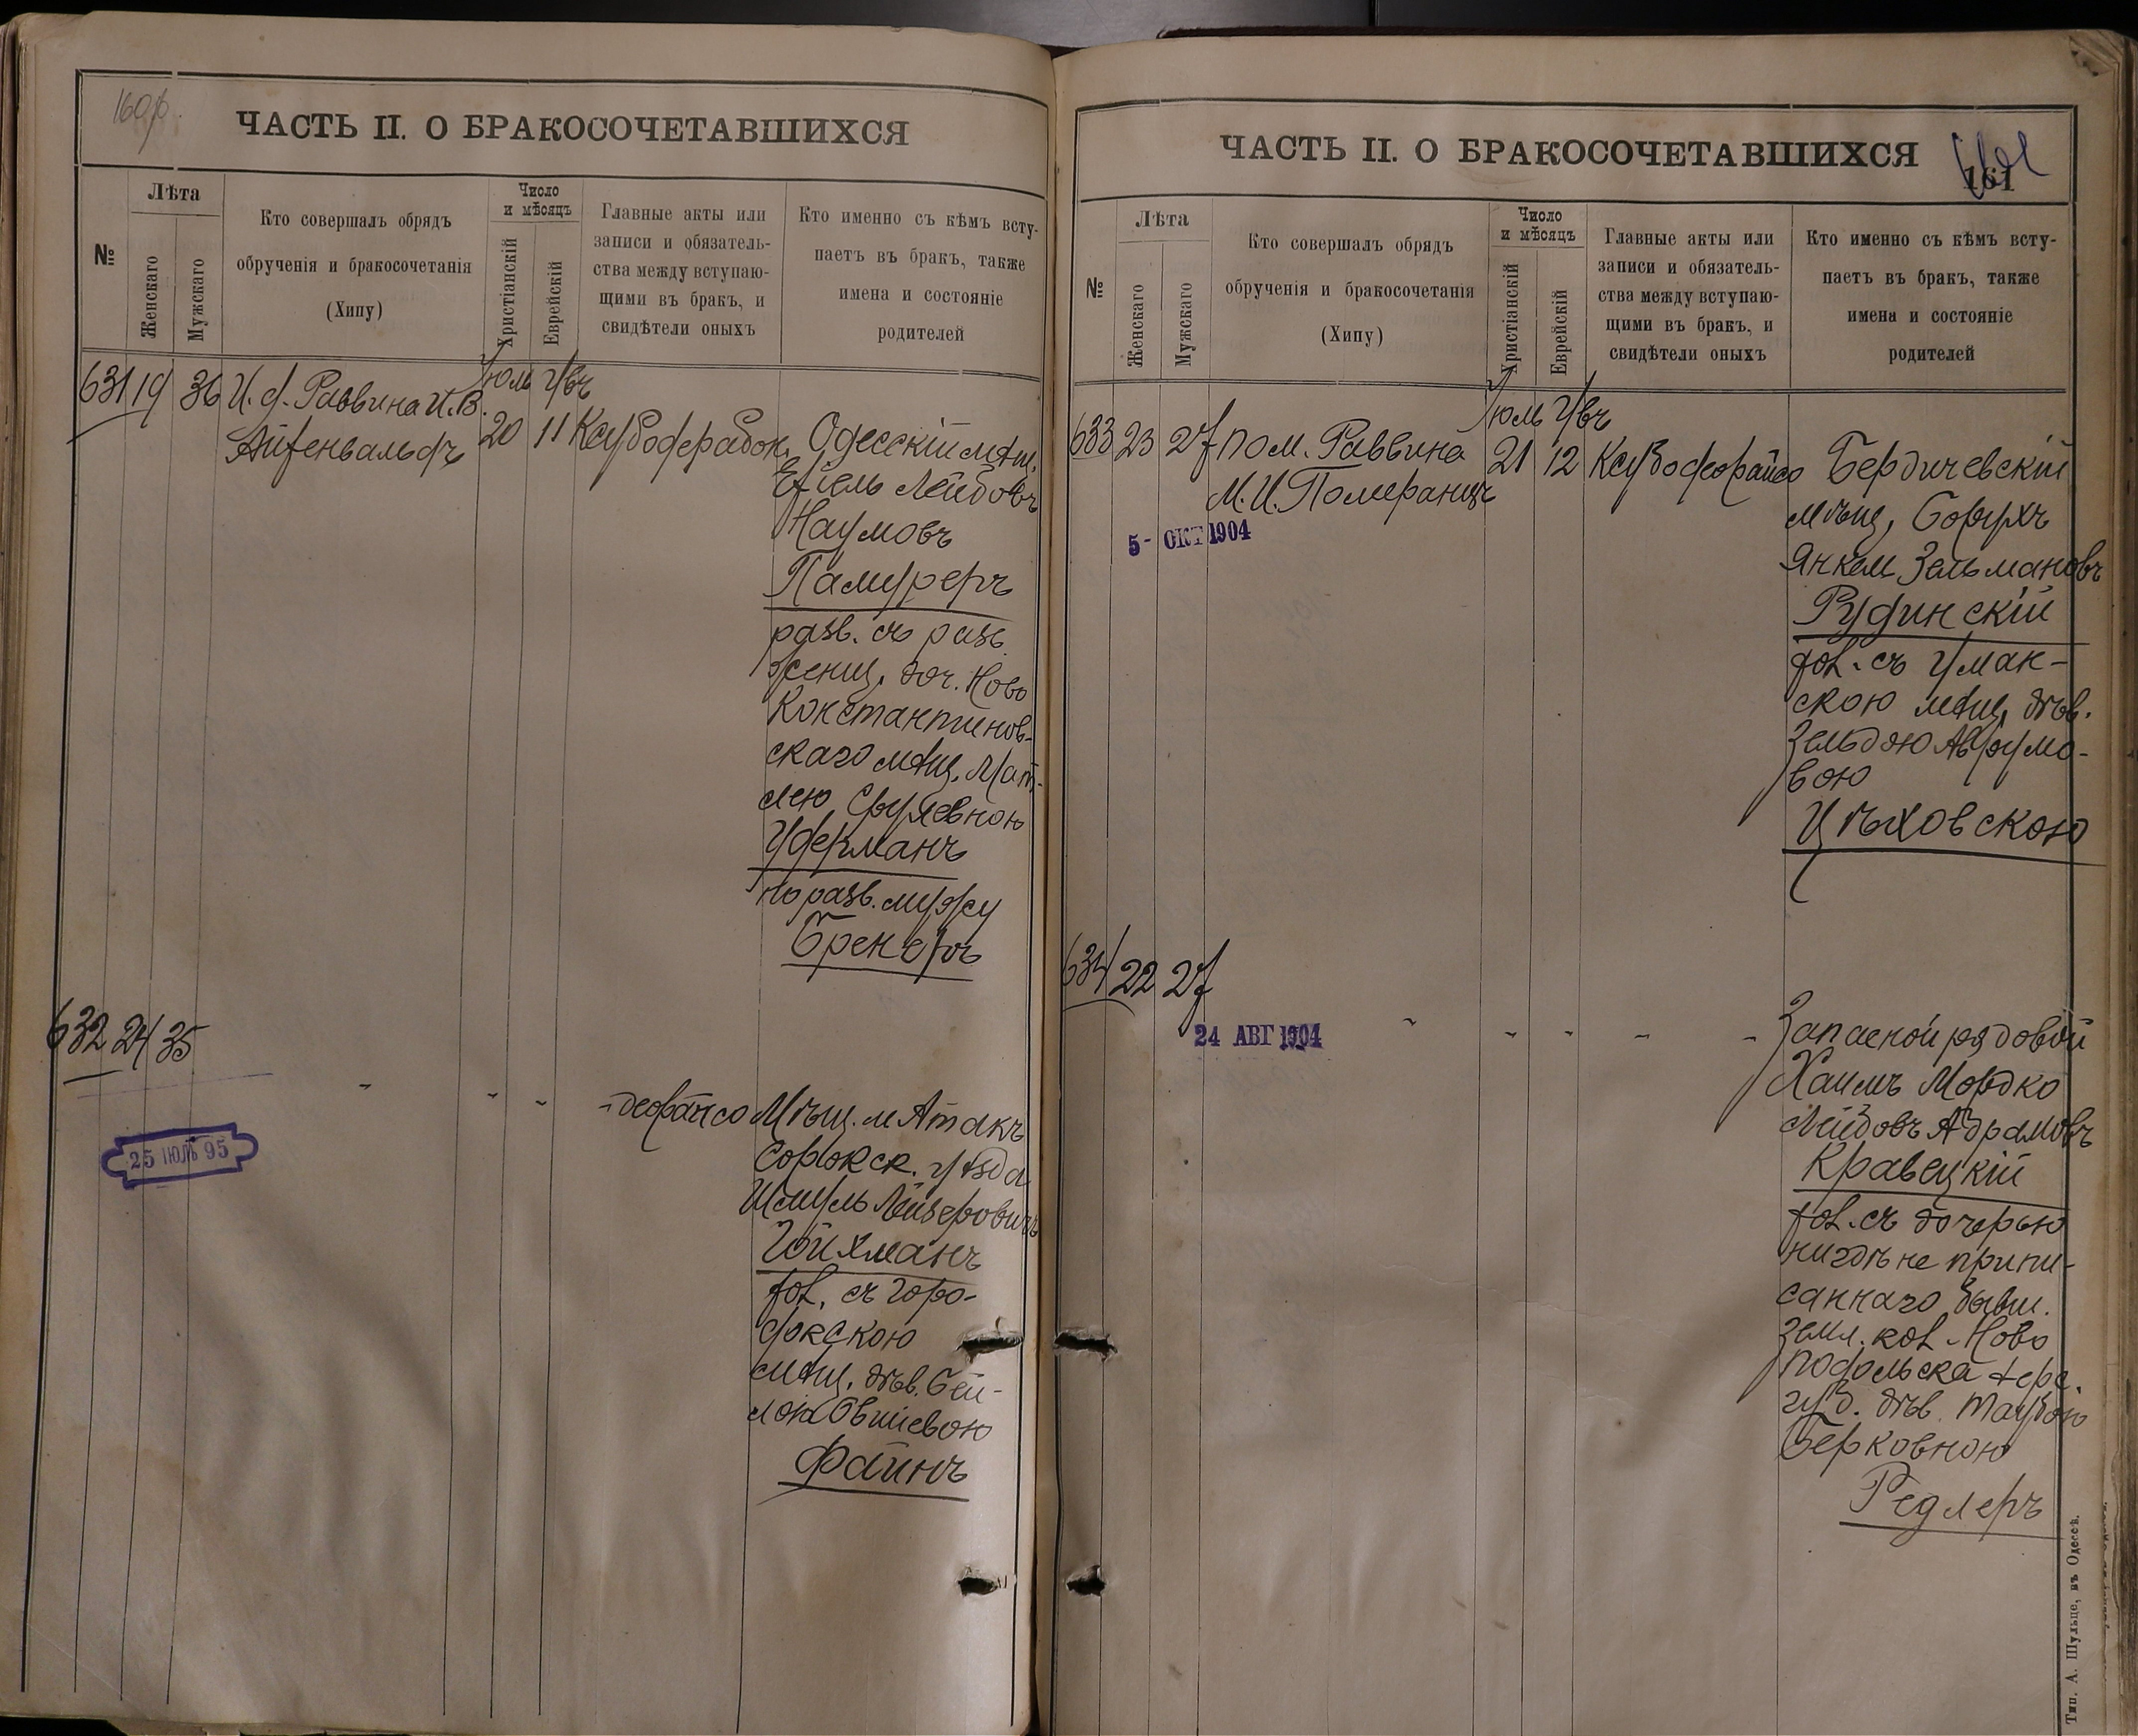 160об.
ЧАСТЬ II. О БРАКОСОЧЕТАВШИХСЯ
№
Лѣта
Женскаго
Мужскаго
Кто совершалъ обрядъ
обрученія и бракосочетанія
(Хипу)
Число
и мѣсяцъ
Христіанскій
Еврейскій
Главные акты или
записи и обязатель-
ства между вступаю-
щими въ бракъ, и
свидѣтели оныхъ
Кто именно съ кѣмъ всту-
паетъ въ бракъ, также
имена и состояніе
родителей
631 19 36 И. д. Раввина И. В.
Айзенвальдъ
Іюль
20 11
Одесскій мѣщ.
Лейбовъ
Наумовъ
разв. съ разв.
женщ. доч. Ново
Константинов-
скаго мѣщ. Мат-
лею Сруревною
Уферманъ
по разв. мужу
Бренеръ
632 24 35
25 ІЮЛЬ 95
Мѣщ. м Атакъ
Сорокск. уѣзда
Шмуль Лейзеровичъ
Гойхманъ
хол. съ Горо-
докскою
мѣщ. дѣв. Бей-
лою Овшіевою
Файнъ
ЧАСТЬ II. О БРАКОСОЧЕТАВШИХСЯ
161
№
Лѣта
Женскаго
Мужскаго
Кто совершалъ обрядъ
обрученія и бракосочетанія
(Хипу)
Число
и мѣсяцъ
Христіанскій
Еврейскій
Главные акты или
записи и обязатель-
ства между вступаю-
щими въ бракъ, и
свидѣтели оныхъ
Кто именно съ кѣмъ всту-
паетъ въ бракъ, также
имена и состояніе
родителей
633 23 27 пом. Раввина
М. И. Померанцъ
5- ОКТ 1904
Іюль
21 12
Бердичевскій
мѣщ. Борухъ
Янкель Зельмановъ
Рудинскій
хол. съ Уман-
скою мѣщ. дѣв.
Зельдою Аврумо-
вою
Цѣховскою
634 22 27
24 АВГ 1904
Запасной рядовой
Хаимъ Мордко
Лейбовъ Абрамовъ
Кравецкій
хол. съ дочерью
нигдѣ не припи-
саннаго бывш.
земл. кол. Ново
Подольска Херс.
губ. дѣв. Таубою
Берковною
Редлеръ
Тип. А. Шульце, въ Одессѣ.